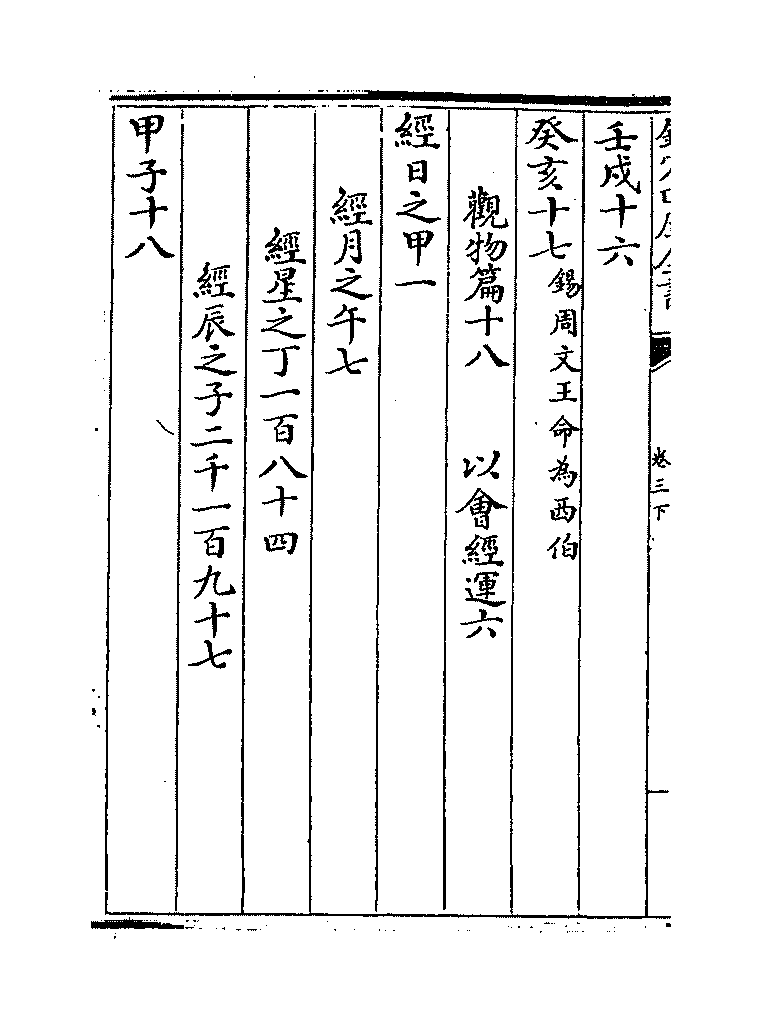 欽定四庫全書
卷三下
壬戌十六
癸亥十七 錫周文王命為西伯
觀物篇十八 以會經運六
經日之甲一
經月之午七
經星之丁一百八十四
經辰之子二千一百九十七
甲子十八